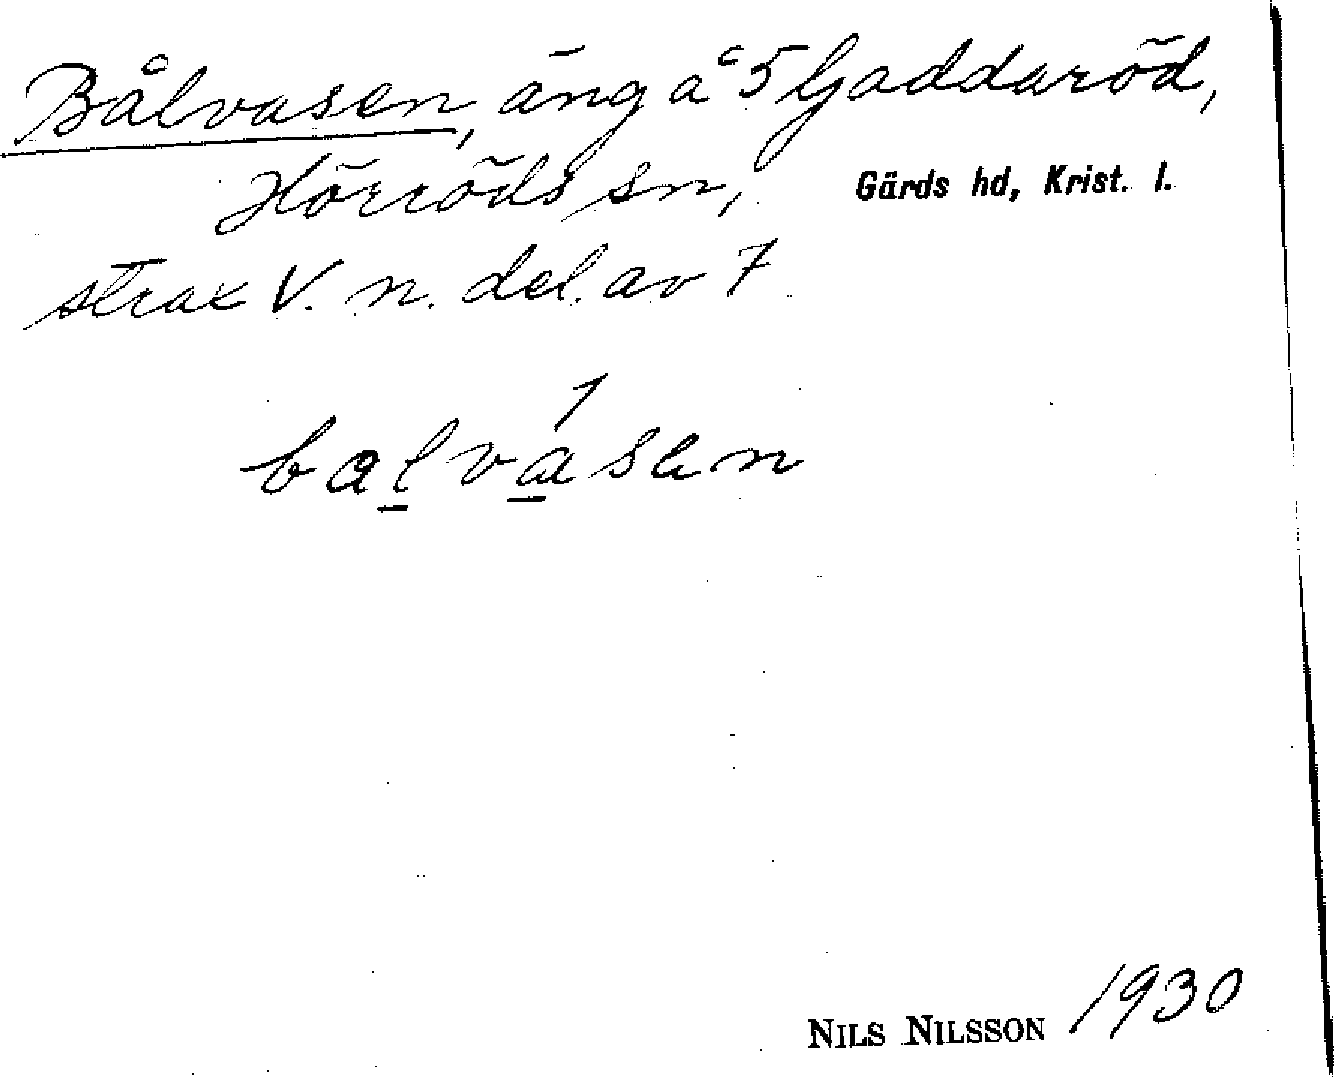 Bålvasen, äng å 5 Gaddaröd,
Hörröds sn, Gärds hd, Krist. l.
strax V. n. del. av 7
balvásen
NILS NILSSON 1930